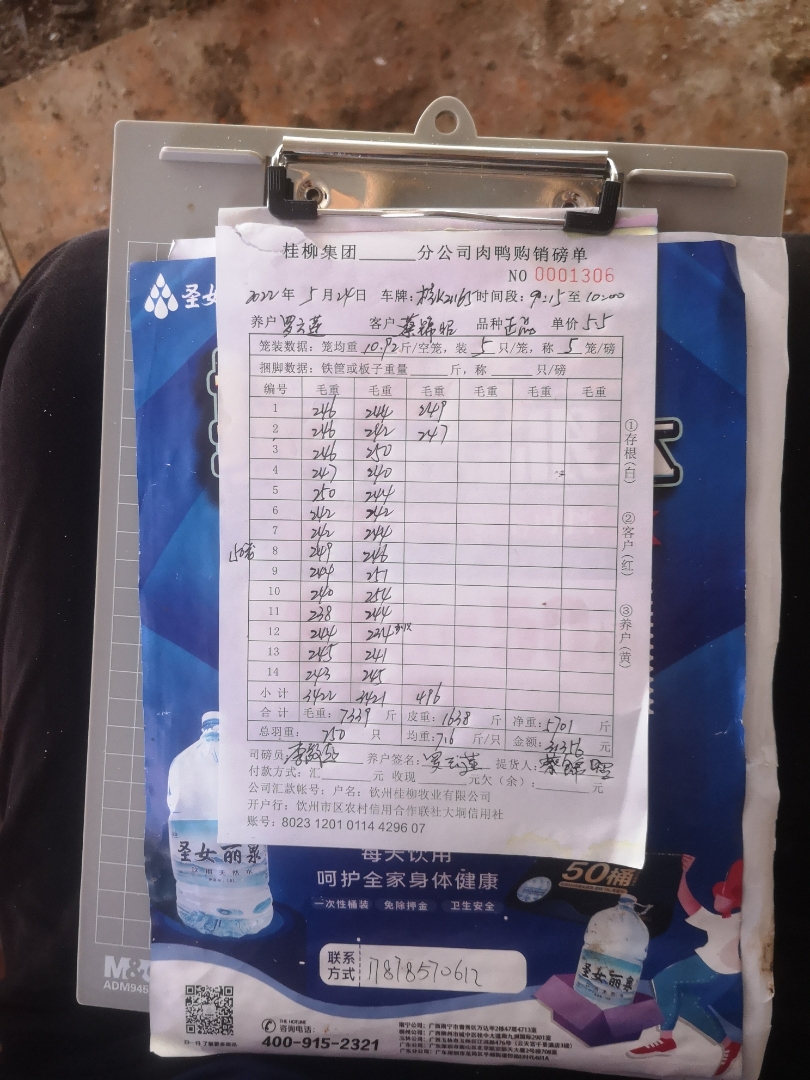 桂柳集团______分公司肉鸭购销磅单
NO 0001306
2022年 5月24日 车牌: 时间段: 9:15至10:00
养户 罗云莲 客户 品种 正品 单价 5.5
笼装数据: 笼均重 10.92 斤/空笼, 装 5 只/笼, 称 5 笼/磅
捆脚数据: 铁筐或板子重量______斤, 称______只/磅
编号 毛重 毛重 毛重 毛重 毛重 毛重
1 246 244 249
2 246 242 247
3 246 250
4 247 240
5 250 244
6 242 242
7 242 244
8 249 246
9 244 251
10 240 254
11 238 244
12 244 234
13 245 241
14 243 245
小计 3422 3421 496
合计 毛重: 7339 斤 皮重: 1638 斤 净重: 5701 斤
总羽重: 750 只 均重: 7.6 斤/只 金额: 31356 元
司磅员: 养户签名: 罗云莲 提货人:
付款方式: 汇______元 收现______元欠(余):______元
公司汇款帐号: 户名: 钦州桂柳牧业有限公司
开户行: 钦州市区农村信用合作联社大垌信用社
账号: 8023 1201 0114 4296 07
①存根(白)
②客户(红)
③养户(黄)
圣女
圣女丽泉
每天饮用
呵护全家身体健康
一次性桶装 免除押金 卫生安全
50桶
圣女丽泉
联系方式 17878570612
THE HOTLINE
咨询电话:
400-915-2321
M&G
ADM945